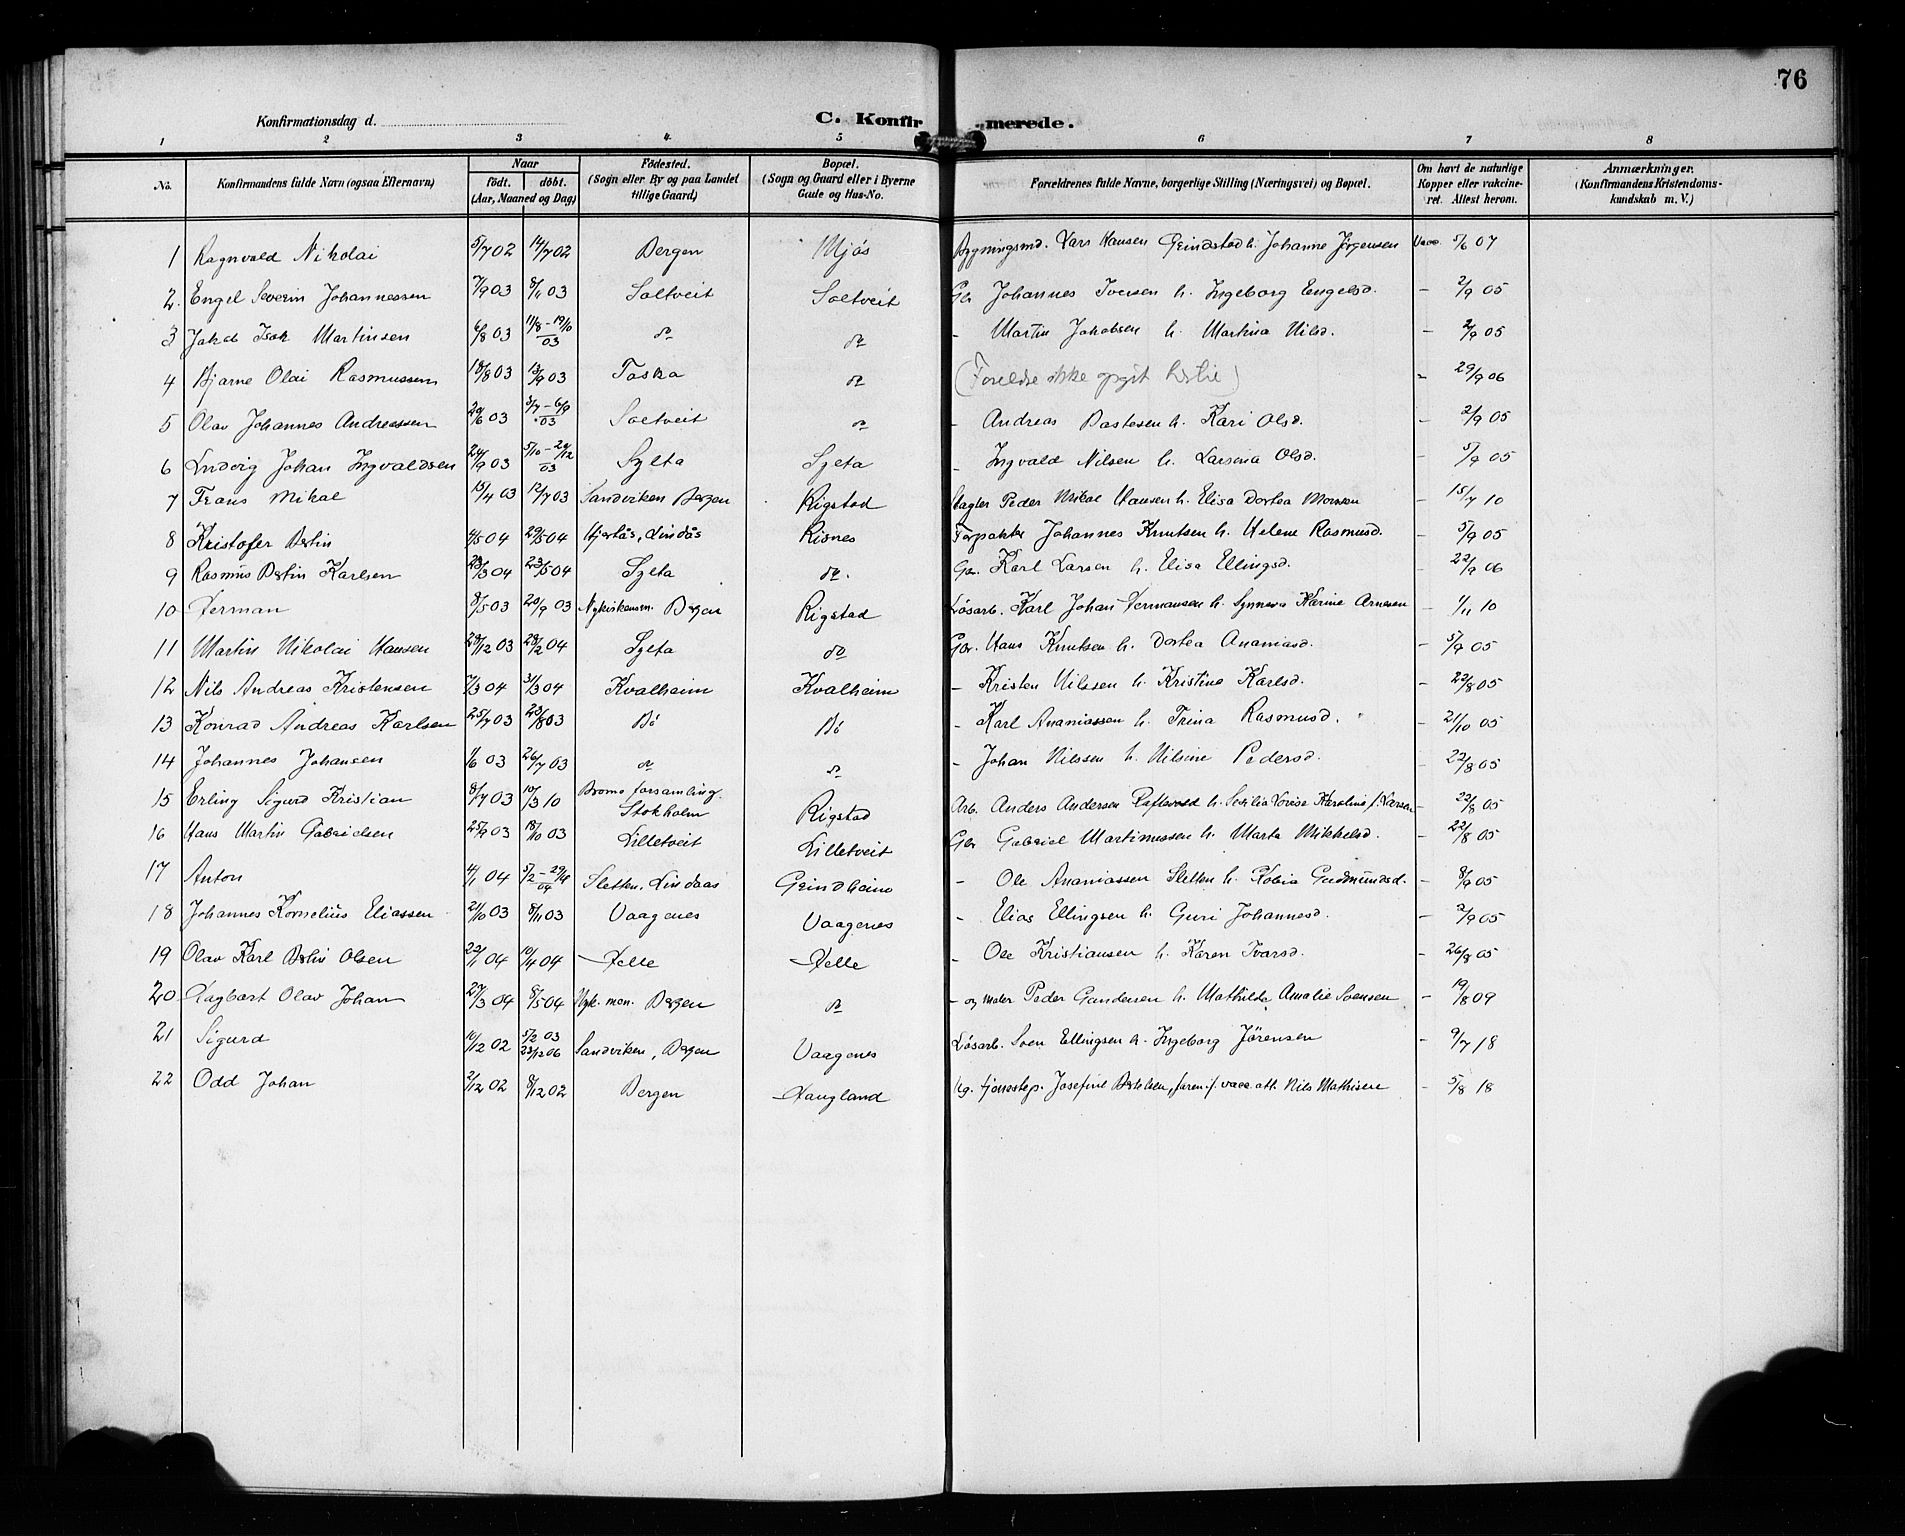 76
Konfirmationsdag d.
C. Konfirmerede.
1 2 3 4 5 6 7 8
No. Konfirmandens fulde Navn (ogsaa Efternavn) Naar födt. döbt. (Aar, Maaned og Dag) Födested. (Sogn eller By og paa Landet tillige Gaard) Bopæl. (Sogn og Gaard eller i Byerne Gade og Hus-No. Forældrenes fulde Navne, borgerlige Stilling (Næringsvei) og Bopæl. Om havt de naturlige Kopper eller vakcineret. Attest herom. Anmærkninger. (Konfirmandens Kristendomskundskab m. V.)
1 Ragnvald Nikolai 5/7 02 14/7 02 Bergen Mjös Bygningsmd. Lars Hansen Grindstad h. Johanne Jörgensen Vacc. 5/6 07
2. Engel Severin Johannessen 7/9 03 8/11 03 Soltveit Soltveit Gbr Johannes Iversen h. Ingeborg Engelsd. - 2/9 05
3 Jakob Isak Martinsen 6/8 03 11/8 - 19/10 03 do do - Martin Jakobsen h. Martina Nilsd. - 2/9 05
4 Bjarne Olai Rasmussen 18/8 03 13/9 03 Taska do (Foreldre ikke opgit) - 29/9 06
5 Olav Johannes Andreassen 29/6 03 5/7 - 6/9 03 Soltveit do - Andreas Bastesen h. Kari Olsd. - 2/9 05
6 Ludvig Johan Ingvaldsen 24/9 03 5/10 - 29/12 03 Sylta Sylta - Ingvald Nilsen h. Larsina Olsd. - 5/9 05
7 Frans Mikal 15/4 03 12/7 03 Sandviken Bergen Rigstad Peder Mikal Hansen h. Elisa Dortea Monsen - 15/7 10
8 Kristofer Bertin 4/5 04 29/5 04 Hjertås, Lindås Risnes Forpakter Johannes Knutsen h. Helene Rasmusd. - 5/9 05
9 Rasmus Bertin Karlsen 28/3 04 23/5 04 Sylta do. Gbr. Karl Larsen h. Elisa Ellingsd. - 22/9 06
10 Herman 8/5 03 20/9 03 Bergen Rigstad Lösarb. Karl Johan Hermansen h. Synneva Karine Arnesen - 1/11 10
11 Martin Nikolai Hansen 28/12 03 28/2 04 Sylta do Gbr. Hans Knutsen h. Dortea Ananiasd. - 5/9 05
12 Nils Andreas Kristensen 7/3 04 31/3 04 Kvalheim Kvalheim - Kristen Nilssen h. Kristine Karlsd. - 22/8 05
13 Konrad Andreas Karlsen 25/7 03 23/8 03 Bö Bö - Karl Ananiassen h. Trina Rasmusd. - 21/10 05
14 Johannes Johansen 1/6 03 26/7 03 do do - Johan Nilssen h. Nilsine Pedersd. - 22/8 05
15 Erling Sigurd Kristian 8/7 03 10/3 10 Bromo forsamling. Stokholm Rigstad Arb. Anders Andersen h. Sesilia Lovise Karolina f. Larsen - 22/8 05
16 Hans Martin Gabrielsen 25/9 03 18/10 03 Lilletveit Lilletveit Gbr Gabriel Martinussen h. Marta Mikkelsd. - 22/8 05
17 Anton 4/1 04 5/2 - 29/4 04 Sletten, Lindaas Grindheim - Ole Ananiassen Sletten h. Gudmundsd. - 8/9 05
18 Johannes Kornelius Eliassen 21/10 03 8/11 03 Vaagenes Vaagenes - Elias Ellingsen h. Guri Johannesd. - 2/9 05
19 Olav Karl Bertin Olsen 22/1 04 10/4 04 Helle Helle - Ole Kristiansen h. Karen Ivarsd. - 26/8 05
20 Dagbart Olav Johan 27/3 04 8/5 04 Nyk. men. Bergen do - og maler Peder Gundersen h. Mathilde Amalie Soensen - 19/8 09
21 Sigurd 10/12 02 5/2 03 23/12 06 Sandviken, Bergen Vaagenes Lösarb. Soen Ellingsen h. Ingeborg Jörensen - 9/7 18
22 Odd Johan 2/12 02 8/12 02 Bergen Haugland Ug. tjenestep. Josefine Bertelsen, vacc. att. Nils Mathisen - 5/8 18